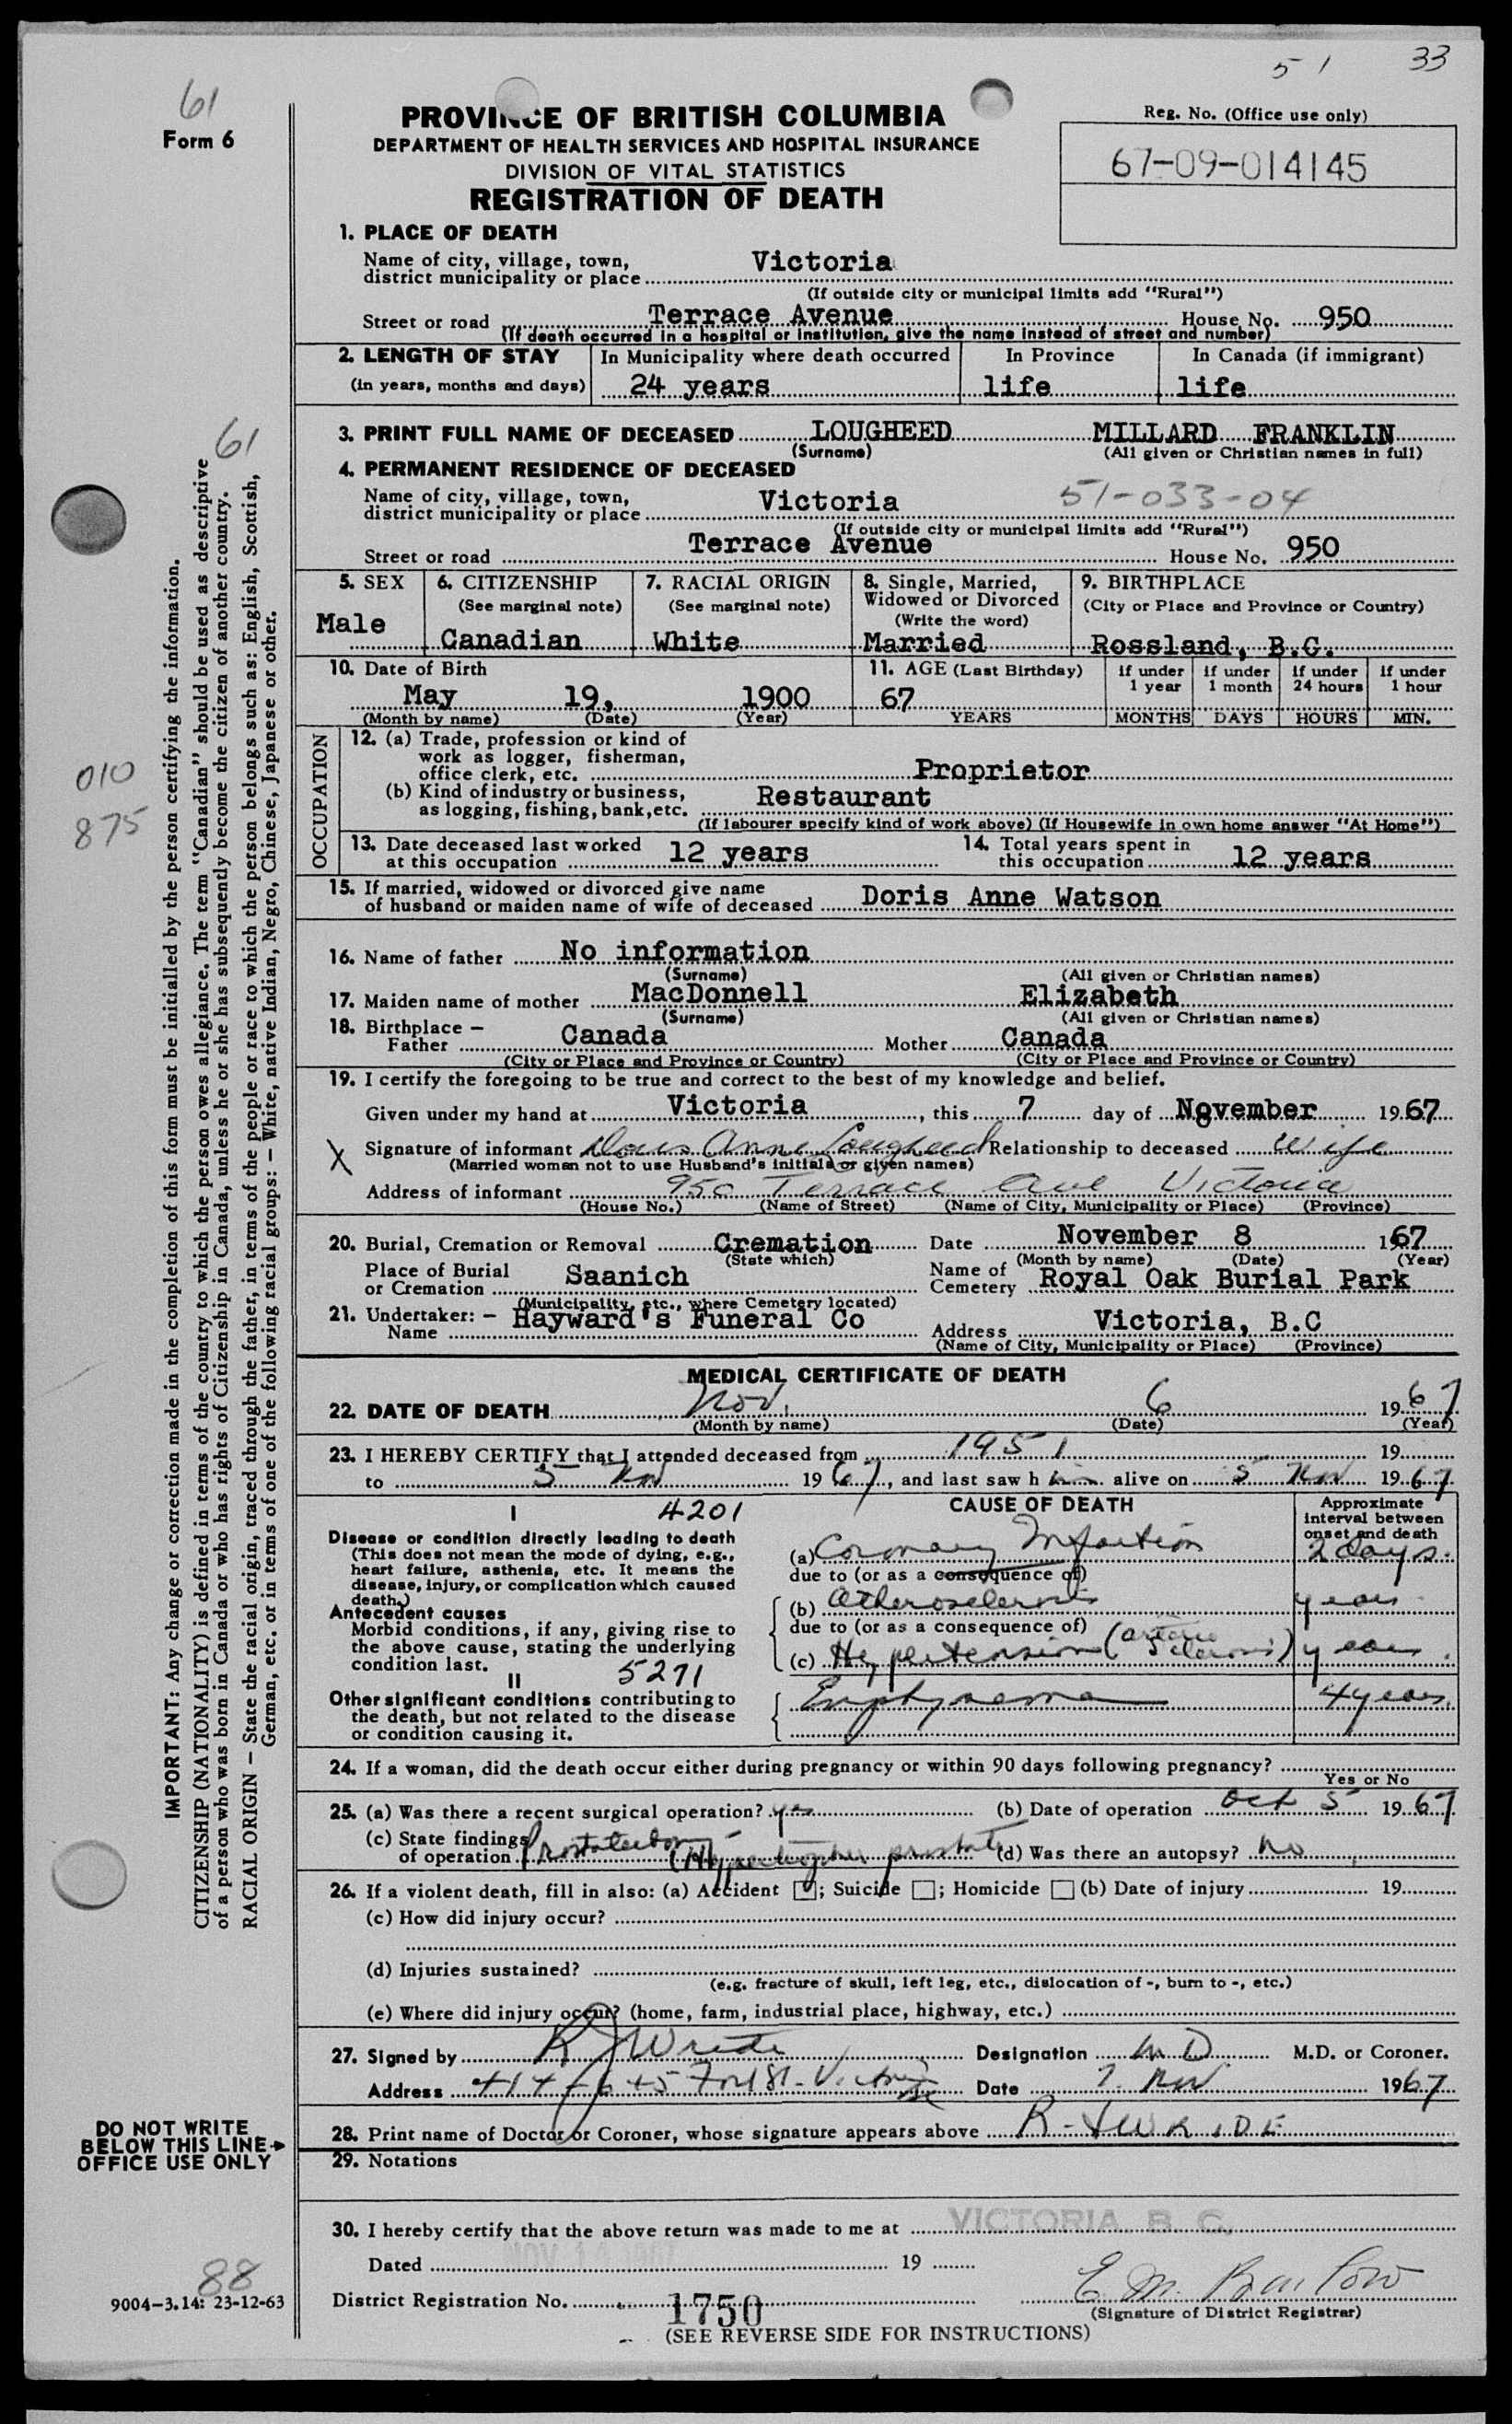 5 1 33
61
Form 6
PROVINCE OF BRITISH COLUMBIA
DEPARTMENT OF HEALTH SERVICES AND HOSPITAL INSURANCE
DIVISION OF VITAL STATISTICS
REGISTRATION OF DEATH
Reg. No. (Office use only)
67-09-014145
1. PLACE OF DEATH
Name of city, village, town,
district municipality or place Victoria
(If outside city or municipal limits add "Rural")
Street or road Terrace Avenue House No. 950
(If death occurred in a hospital or institution, give the name instead of street and number)
2. LENGTH OF STAY In Municipality where death occurred In Province In Canada (if immigrant)
(in years, months and days) 24 years life life
3. PRINT FULL NAME OF DECEASED LOUGHEED MILLARD FRANKLIN
(Surname) (All given or Christian names in full)
4. PERMANENT RESIDENCE OF DECEASED
Name of city, village, town,
district municipality or place Victoria 51-033-04
(If outside city or municipal limits add "Rural")
Street or road Terrace Avenue House No. 950
5. SEX 6. CITIZENSHIP 7. RACIAL ORIGIN 8. Single, Married, Widowed or Divorced 9. BIRTHPLACE
(See marginal note) (See marginal note) (Write the word) (City or Place and Province or Country)
Male Canadian White Married Rossland, B.C.
10. Date of Birth 11. AGE (Last Birthday) if under 1 year if under 1 month if under 24 hours if under 1 hour
May 19, 1900 67
(Month by name) (Date) (Year) YEARS MONTHS DAYS HOURS MIN.
OCCUPATION
12. (a) Trade, profession or kind of
work as logger, fisherman,
office clerk, etc. Proprietor
(b) Kind of industry or business,
as logging, fishing, bank, etc. Restaurant
(If labourer specify kind of work above) (If Housewife in own home answer "At Home")
13. Date deceased last worked
at this occupation 12 years
14. Total years spent in
this occupation 12 years
15. If married, widowed or divorced give name
of husband or maiden name of wife of deceased Doris Anne Watson
16. Name of father No information
(Surname) (All given or Christian names)
17. Maiden name of mother MacDonnell Elizabeth
(Surname) (All given or Christian names)
18. Birthplace –
Father Canada Mother Canada
(City or Place and Province or Country) (City or Place and Province or Country)
19. I certify the foregoing to be true and correct to the best of my knowledge and belief.
Given under my hand at Victoria, this 7 day of November 1967
X Signature of informant Doris Anne Lougheed Relationship to deceased wife
(Married woman not to use Husband's initials or given names)
Address of informant 950 Terrace Ave Victoria
(House No.) (Name of Street) (Name of City, Municipality or Place) (Province)
20. Burial, Cremation or Removal Cremation Date November 8 1967
(State which) (Month by name) (Date) (Year)
Place of Burial
or Cremation Saanich
Name of
Cemetery Royal Oak Burial Park
(Municipality, etc., where Cemetery located)
21. Undertaker: –
Name Hayward's Funeral Co Address Victoria, B.C
(Name of City, Municipality or Place) (Province)
MEDICAL CERTIFICATE OF DEATH
22. DATE OF DEATH Nov. 6 1967
(Month by name) (Date) (Year)
23. I HEREBY CERTIFY that I attended deceased from 1951 19
to 5 Nov 1967, and last saw h im alive on 5 Nov 1967
I 4201 CAUSE OF DEATH Approximate interval between onset and death
Disease or condition directly leading to death
(This does not mean the mode of dying, e.g.,
heart failure, asthenia, etc. It means the
disease, injury, or complication which caused
death.)
(a) Coronary Infarction 2 days.
due to (or as a consequence of)
Antecedent causes
Morbid conditions, if any, giving rise to
the above cause, stating the underlying
condition last.
(b) Atherosclerosis years
due to (or as a consequence of)
(c) Hypertension (arterio sclerosis) years.
II 5271
Other significant conditions contributing to
the death, but not related to the disease
or condition causing it.
Emphysema 4 years.
24. If a woman, did the death occur either during pregnancy or within 90 days following pregnancy?
Yes or No
25. (a) Was there a recent surgical operation? yes (b) Date of operation Oct 5 1967
(c) State findings
of operation Prostatectomy (d) Was there an autopsy? No
26. If a violent death, fill in also: (a) Accident ; Suicide ; Homicide (b) Date of injury 19
(c) How did injury occur?
(d) Injuries sustained?
(e.g. fracture of skull, left leg, etc., dislocation of -, burn to -, etc.)
(e) Where did injury occur? (home, farm, industrial place, highway, etc.)
27. Signed by R J Wride Designation M D M.D. or Coroner.
Address Fort St. Victoria Date 7. Nov 1967
28. Print name of Doctor or Coroner, whose signature appears above R-J WRIDE
29. Notations
30. I hereby certify that the above return was made to me at VICTORIA B. C.
Dated NOV 14 1967 19
District Registration No. 1750
E. M. Barlow
(Signature of District Registrar)
(SEE REVERSE SIDE FOR INSTRUCTIONS)
61
010
875
IMPORTANT: Any change or correction made in the completion of this form must be initialled by the person certifying the information.
CITIZENSHIP (NATIONALITY) is defined in terms of the country to which the person owes allegiance. The term "Canadian" should be used as descriptive
of a person who was born in Canada or who has rights of Citizenship in Canada, unless he or she has subsequently become the citizen of another country.
RACIAL ORIGIN – State the racial origin, traced through the father, in terms of the people or race to which the person belongs such as: English, Scottish,
German, etc. or in terms of one of the following racial groups: – White, native Indian, Negro, Chinese, Japanese or other.
DO NOT WRITE
BELOW THIS LINE
OFFICE USE ONLY
88
9004-3.14: 23-12-63